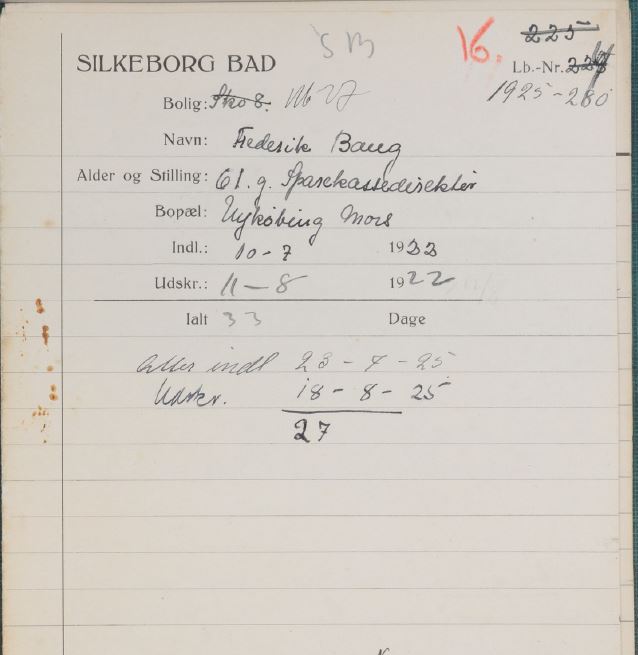 16.
225
SILKEBORG BAD
Lb.-Nr.
1925-280
Bolig: Sko 8.
Navn: Frederik Bang
Alder og Stilling: 61. g. Sparekassedirektør
Bopæl: Nykøbing Mors
Indl.: 10-7 1922
Udskr.: 11-8 1922
Ialt 33 Dage
atter indl 23-7-25
Udskr. 18-8-25
27